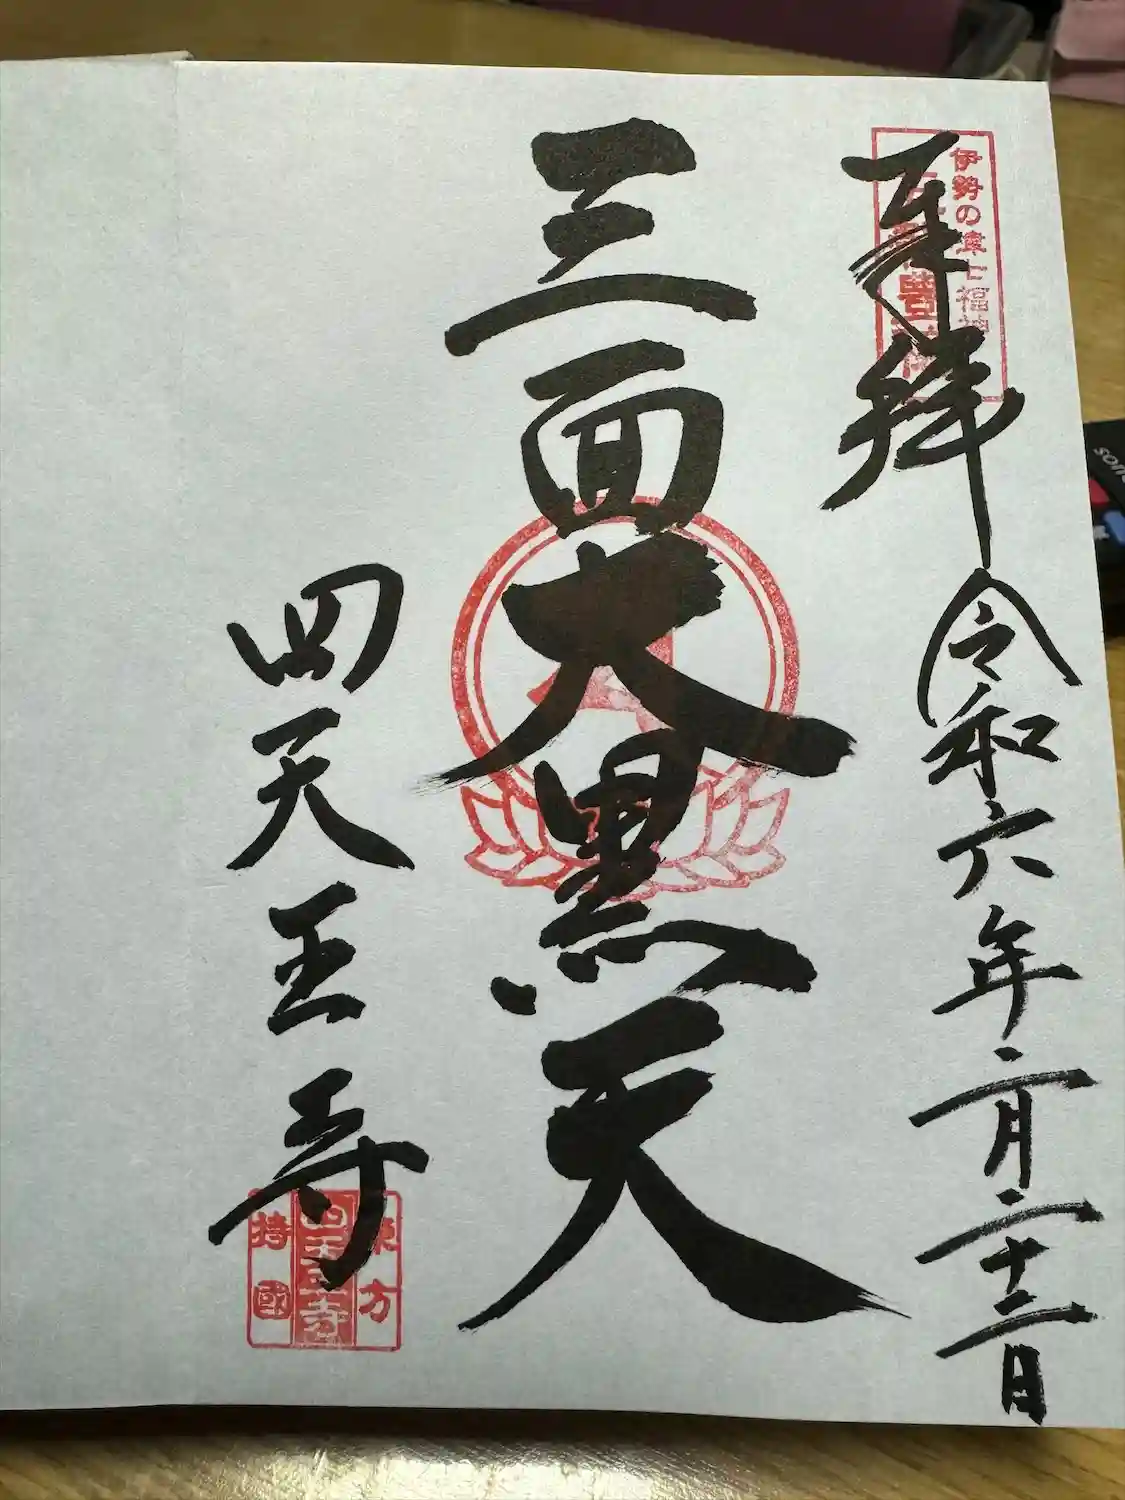 伊勢の津七福神
奉拝 令和六年二月二十三日
三面大黒天
四天王寺
東方
四天王寺
持國